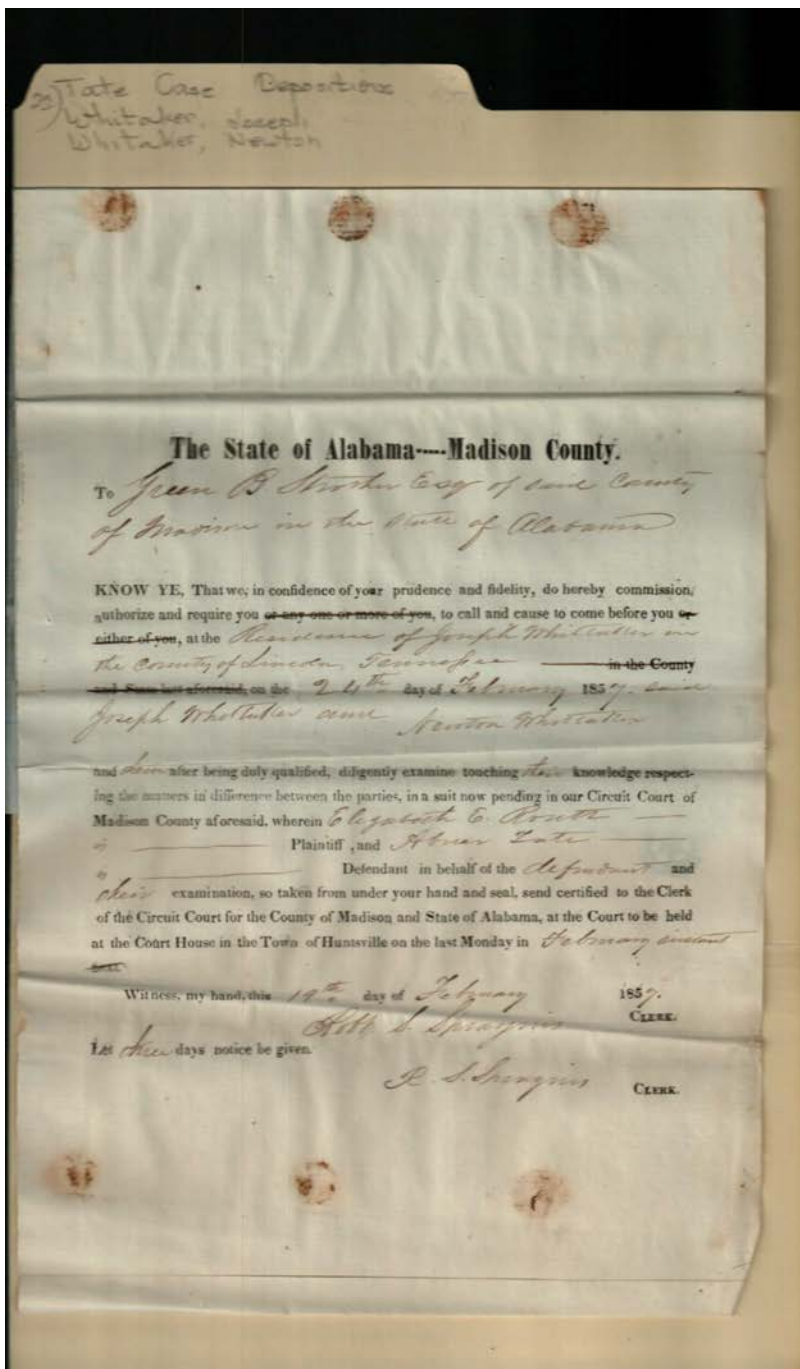 25) Tate Case Depositions
Whitaker, Joseph
Whitaker, Newton
The State of Alabama----Madison County.
To Green B Strother Esq of said County
of Madison in the State of Alabama
KNOW YE, That we, in confidence of your prudence and fidelity, do hereby commission,
authorize and require you or any one or more of you, to call and cause to come before you or
either of you, at the Residence of Joseph Whittaker in
the County of Lincoln, Tennessee in the County
and State last aforesaid, on the 24th day of February 1857. said
Joseph Whittaker and Newton Whittaker
and them after being duly qualified, diligently examine touching their knowledge respect-
ing the matters in difference between the parties, in a suit now pending in our Circuit Court of
Madison County aforesaid, wherein Elizabeth E. Routt
is Plaintiff, and Abner Tate
is Defendant in behalf of the defendant and
their examination, so taken from under your hand and seal, send certified to the Clerk
of the Circuit Court for the County of Madison and State of Alabama, at the Court to be held
at the Court House in the Town of Huntsville on the last Monday in February instant
next.
Witness, my hand, this 19th day of February 1857.
Robt S. Spragins CLERK.
Let three days notice be given.
R. S. Spragins CLERK.